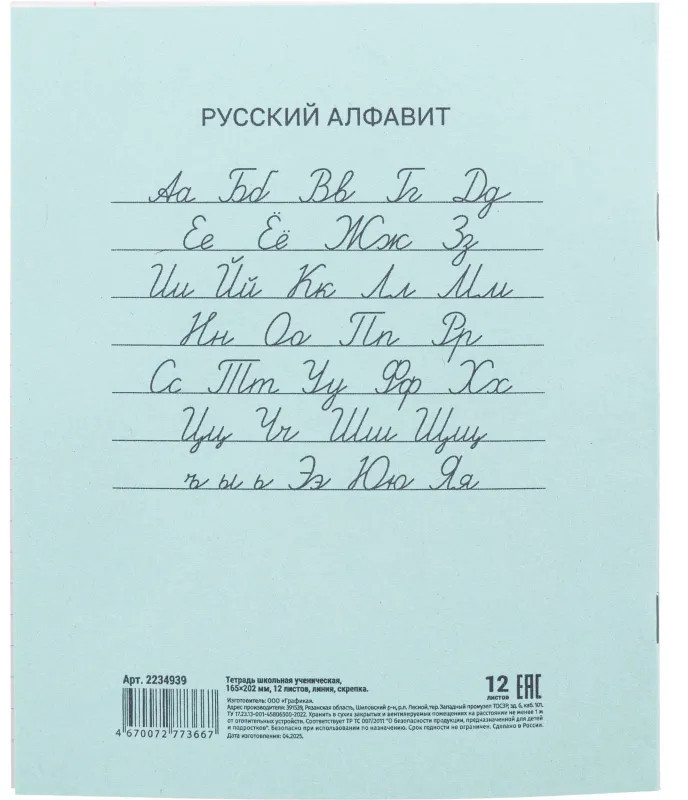 РУССКИЙ АЛФАВИТ
Аа Бб Вв Гг Дд
Ее Ёё Жж Зз
Ии Йй Кк Лл Мм
Нн Оо Пп Рр
Сс Тт Уу Фф Хх
Цц Чч Шш Щщ
ъ ы ь Ээ Юю Яя
Арт. 2234939
4 670072 773667
Тетрадь школьная ученическая,
165×202 мм, 12 листов, линия, скрепка.
Изготовитель: ООО «Графика».
Адрес производителя: 391539, Рязанская область, Шиловский р-н, р.п. Лесной, тер. Западный промузел ТОСЭР, зд. 6, каб. 101.
ТУ 17.23.13-001-45806500-2022. Хранить в сухих закрытых и вентилируемых помещениях на расстоянии не менее 1 м
от отопительных устройств. Соответствует ТР ТС 007/2011 "О безопасности продукции, предназначенной для детей
и подростков". Безопасно при использовании по назначению. Срок годности не ограничен. Сделано в России.
Дата изготовления: 04.2025.
12
листов
ЕАС